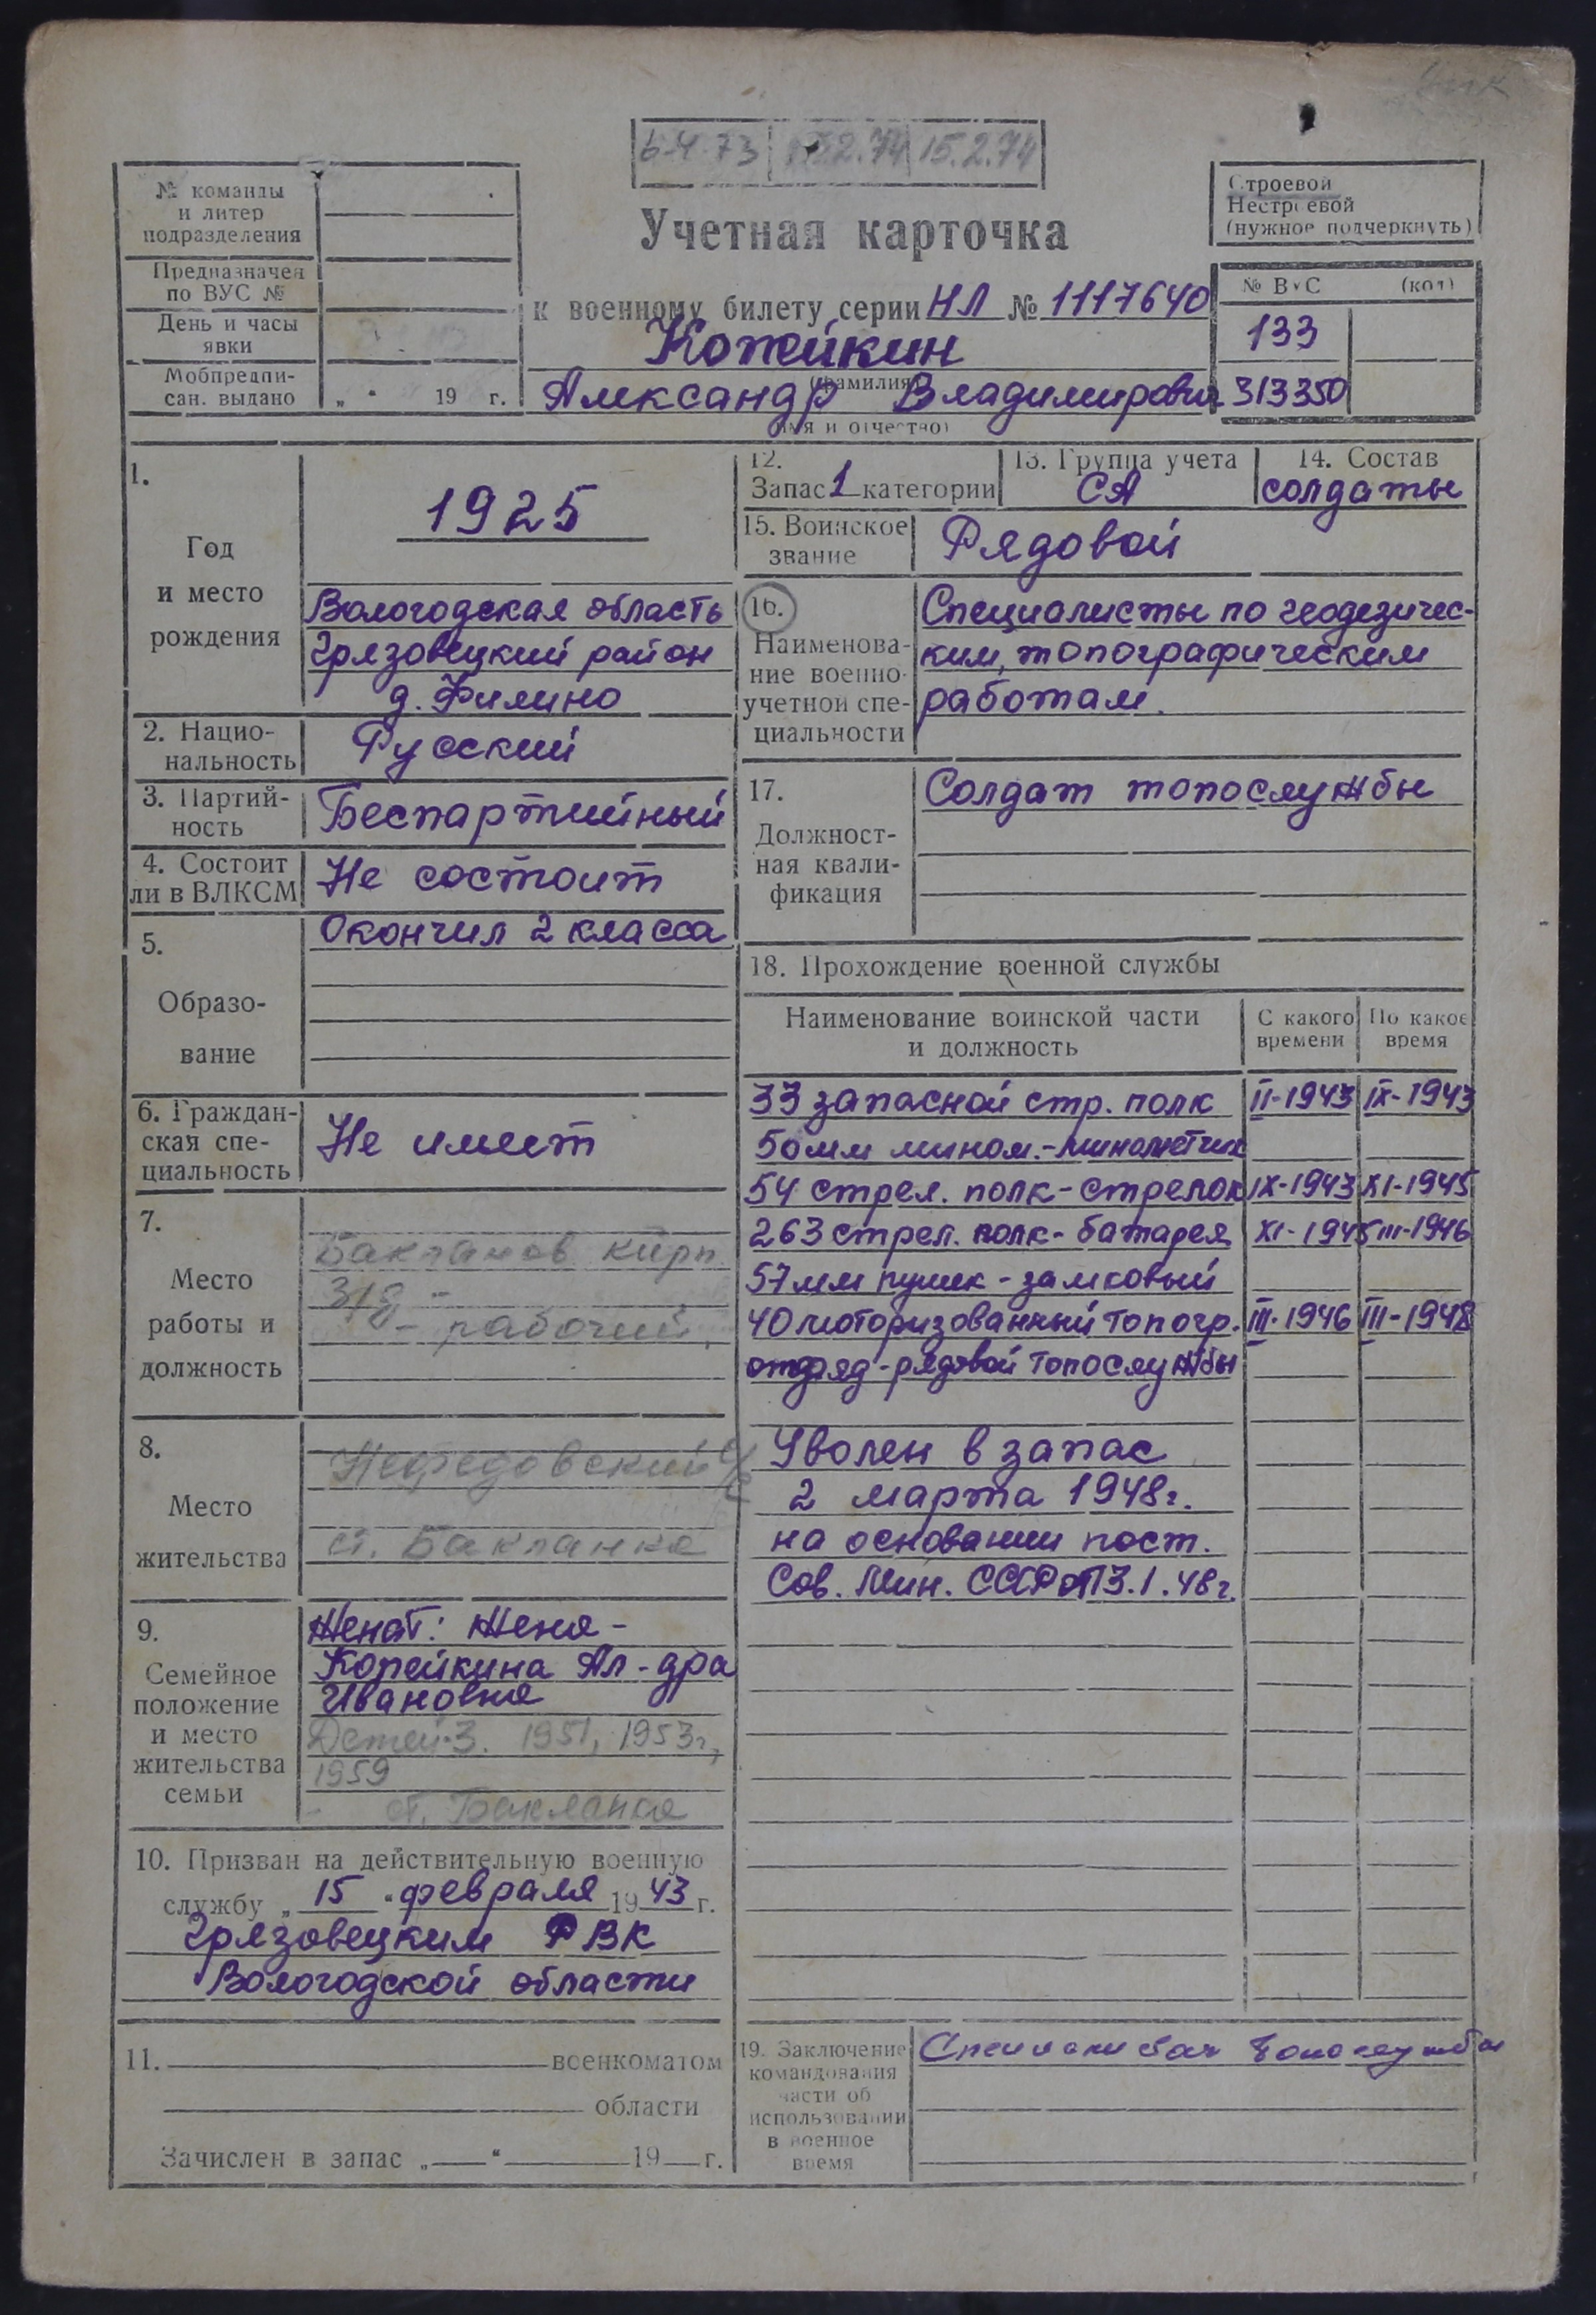 6.4.73 15.2.74 15.2.74
№ команды
и литер
подразделения
Предназначен
по ВУС №
День и часы
явки
Мобпредпи-
сан. выдано „ " 19 г.
Учетная карточка
к военному билету серии НЛ № 1117640
Копейкин
(фамилия)
Александр Владимирович
(имя и отчество)
Строевой
Нестроевой
(нужное подчеркнуть)
№ ВУС (код)
133
313350
1.
Год
и место
рождения
1925
Вологодская область
Грязовецкий район
д. Филино
2. Нацио-
нальность
Русский
3. Партий-
ность
Беспартийный
4. Состоит
ли в ВЛКСМ
Не состоит
5.
Образо-
вание
Окончил 2 класса
6. Граждан-
ская спе-
циальность
Не имеет
7.
Место
работы и
должность
Бакланов кирп.
з/д -
- рабочий
8.
Место
жительства
Нефедовский с/с
ст. Бакланка
9.
Семейное
положение
и место
жительства
семьи
Женат: Жена -
Копейкина Ал-дра
Ивановна
Детей-3. 1951, 1953г.,
1959
ст. Бакланка
10. Призван на действительную военную
службу „ 15 " февраля 1943 г.
Грязовецким РВК
Вологодской области
11. военкоматом
области
Зачислен в запас „ " 19 г.
12.
Запас 1 категории
13. Группа учета
СА
14. Состав
солдаты
15. Воинское
звание
Рядовой
16.
Наименова-
ние военно-
учетной спе-
циальности
Специалисты по геодезичес-
ким, топографическим
работам.
17.
Должност-
ная квали-
фикация
Солдат топослужбы
18. Прохождение военной службы
Наименование воинской части
и должность
С какого
времени
По какое
время
33 запасной стр. полк II-1943 IX-1943
50мм мином.-минометчик
54 стрел. полк-стрелок IX-1943 XI-1945
263 стрел. полк-батарея XI-1945 III-1946
57мм пушек - замковый
40 моторизованный топогр. III-1946 III-1948
отряд-рядовой топослужбы
Уволен в запас
2 марта 1948г.
на основании пост.
Сов. Мин. СССР от 13.1.48г.
19. Заключение
командования
части об
использовании
в военное
время
топослужбы